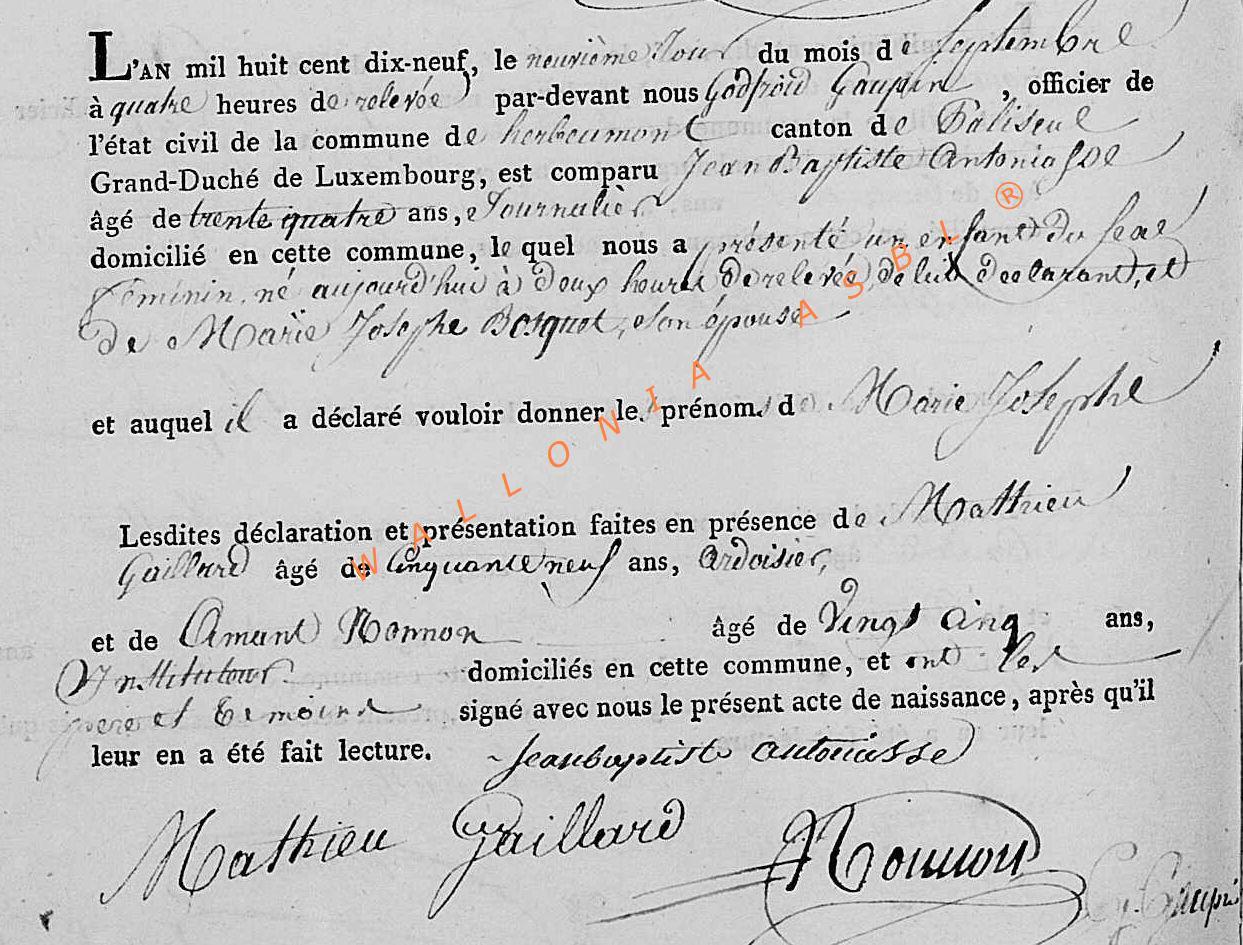 L'AN mil huit cent dix-neuf, le neuvième Jour du mois de Septembre
à quatre heures de relevée par-devant nous Godfroid Gaupin, officier de
l'état civil de la commune de herbeumont canton de Paliseul
Grand-Duché de Luxembourg, est comparu Jean Baptiste Antoniasse
âgé de trente quatre ans, Journalier
domicilié en cette commune, le quel nous a présenté un enfant du sexe
féminin, né aujourd'hui à deux heures de relevée, de lui declarant, et
de Marie Josephe Bosquet, son épouse
et auquel il a déclaré vouloir donner les prénoms de Marie Josephe
Lesdites déclaration et présentation faites en présence de Mathieu
Gaillard âgé de Cinquante neuf ans, Ardoisier,
et de Amant Nonnon âgé de Vingt Cinq ans,
Instituteur domiciliés en cette commune, et ont les
père et témoins signé avec nous le présent acte de naissance, après qu'il
leur en a été fait lecture. Jeanbaptiste antoniasse
Mathieu Gaillard Nonnon
Gaupin
WALLONIA ASBL ®